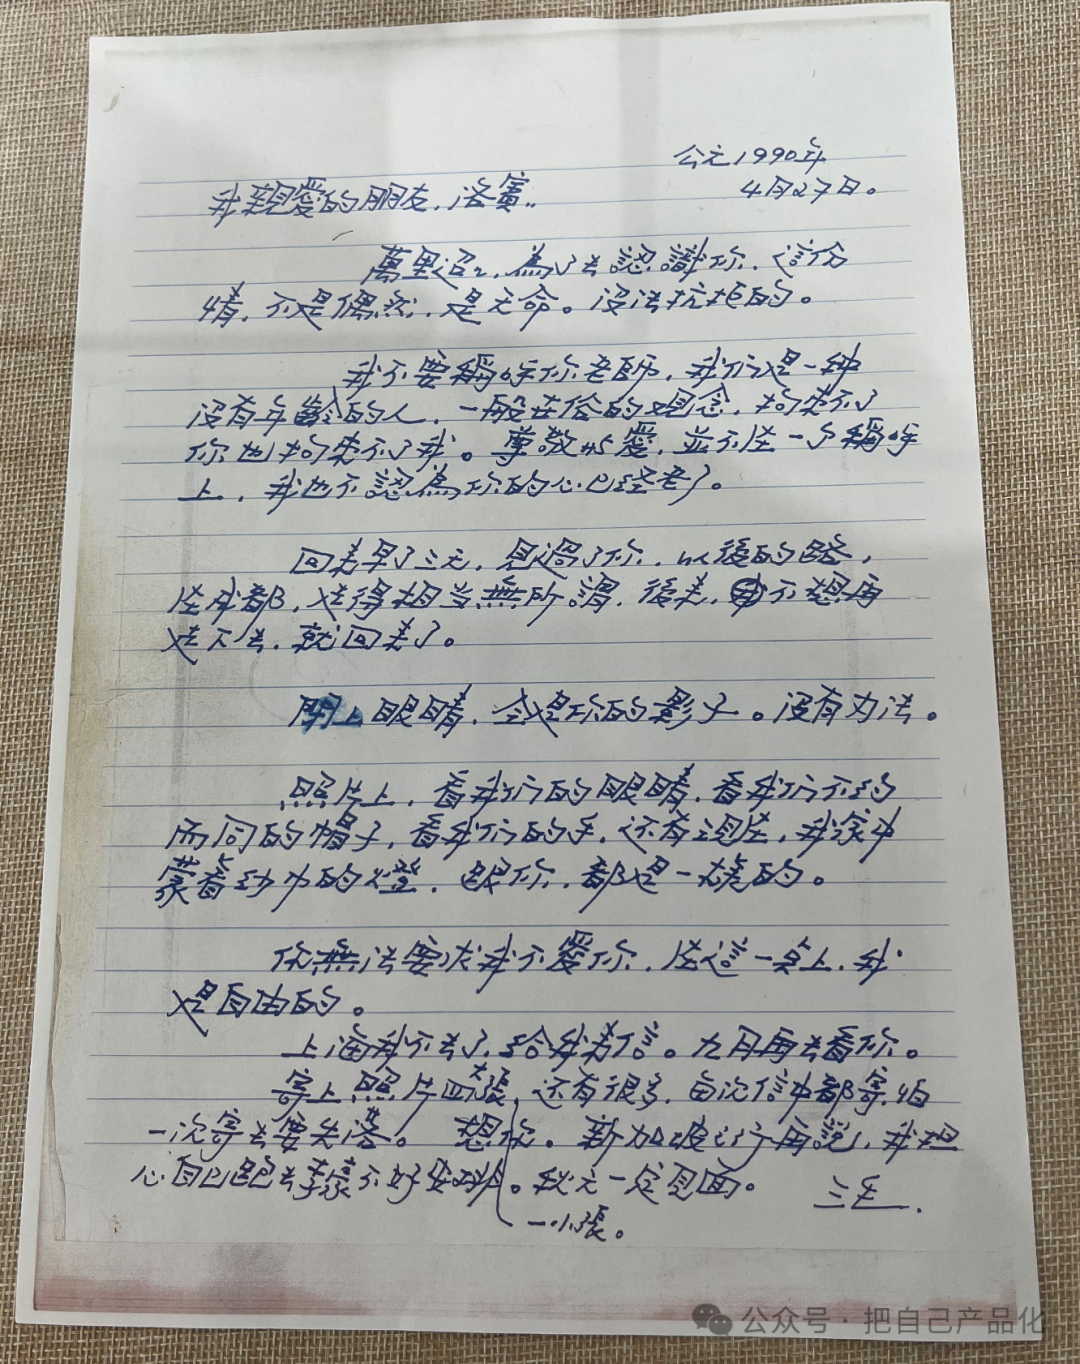 公元1990年
4月27日。
我親愛的朋友,洛賓:
萬里迢々,為了去認識你,這份
情,不是偶然,是天命。没法抗拒的。
我不要稱呼你老師,我们是一种
没有年齡的人,一般世俗的观念,拘束不了
你也拘束不了我。尊敬與愛,並不在一个稱呼
上,我也不認為你的心已经老了。
回来早了三天,見過了你,以後的路,
在成都,走得相当無所謂,後来,不想再
走下去,就回来了。
閉上眼睛,全是你的影子。没有办法。
照片上,看我们的眼睛,看我们不约
而同的帽子,看我们的手,还有現在,我家中
蒙着纱巾的燈,跟你,都是一樣的。
你無法要求我不愛你,在這一点上,我
是自由的。
上海我不去了,给我来信。九月再去看你。
寄上照片四大張,还有很多,每次信中都寄,怕
一次寄去要失落。 想你。新加坡之行再説,我担
心自己跑去李豪不好安排。秋天一定見面。
三毛.
一小張。
公众号·把自己产品化